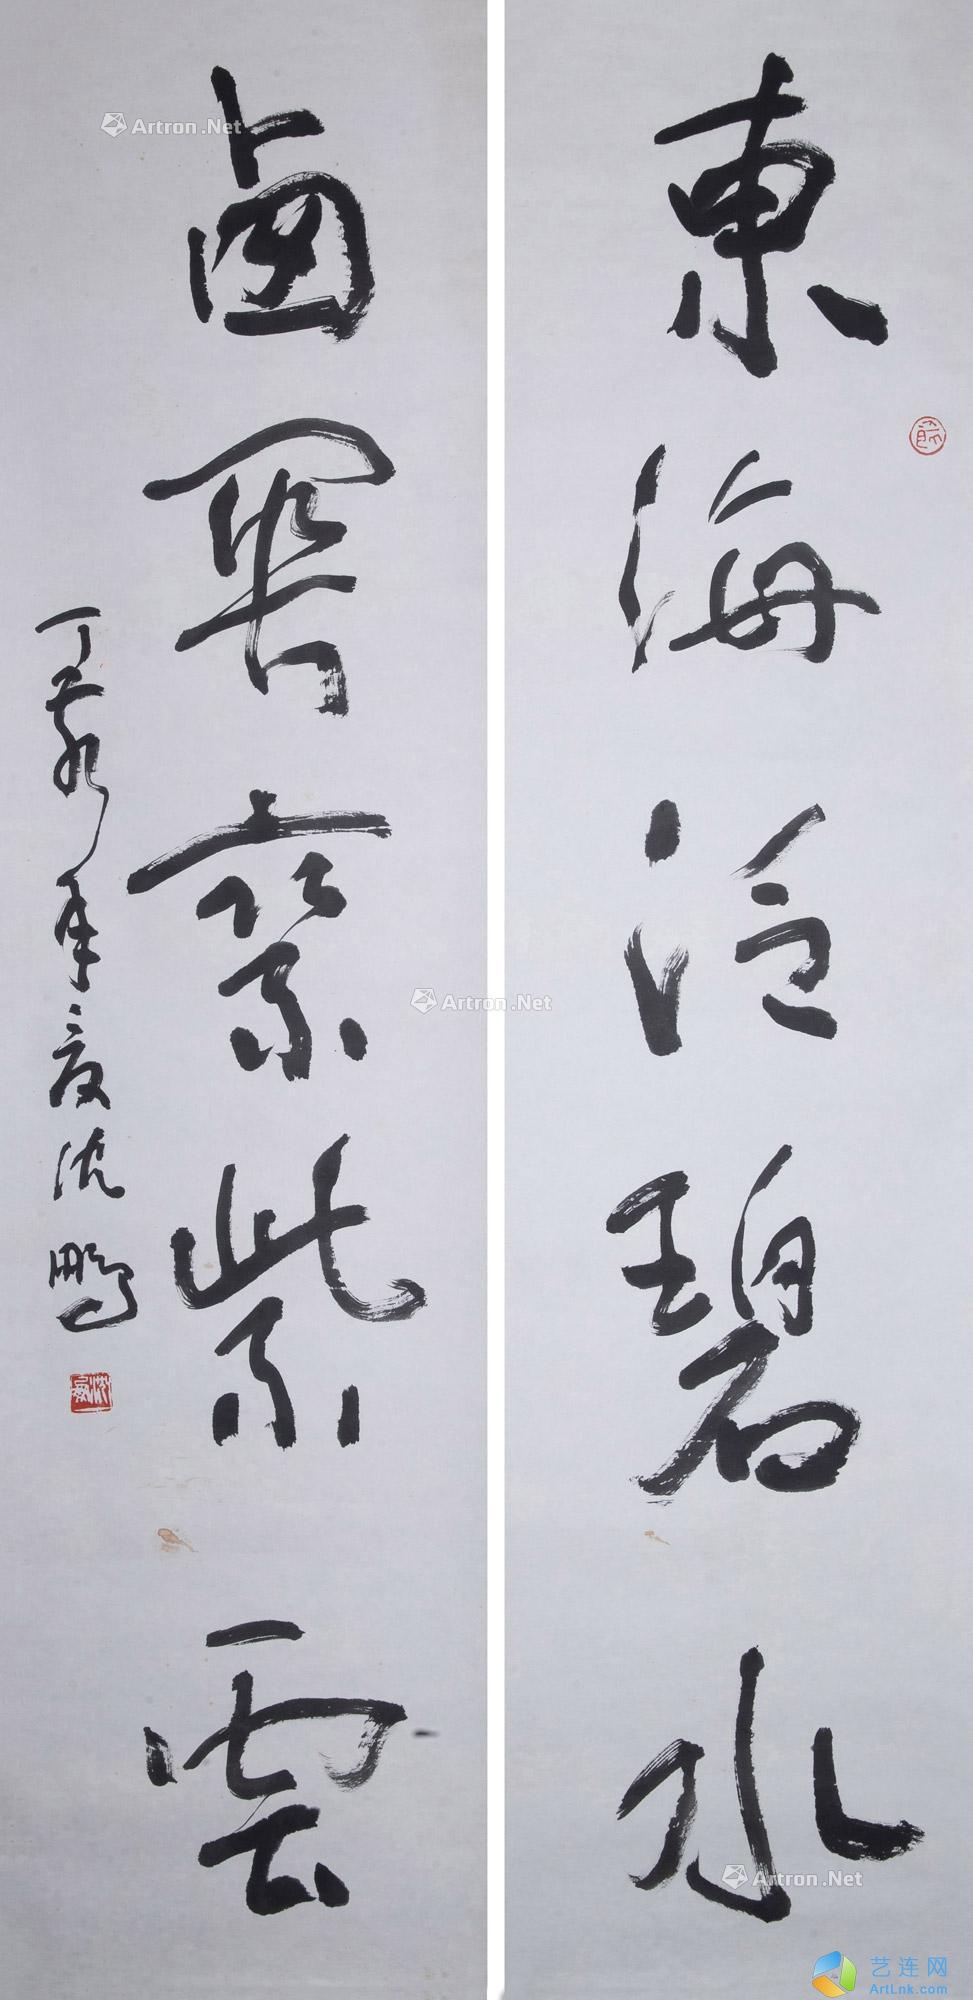 東海泛碧水
卥關乘紫雲
丁卯年夏沈鵬
沈鵬
Artron.Net
Artron.Net
Artron.Net
艺连网
ArtLnk.com